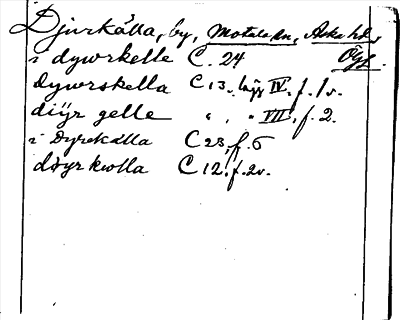 Djurkälla, by, Motala sn, Aska hd,
Ögl.
i dywrkelle C. 24
Dywrskella C 13. lägg IV, f. 1 v.
diyr gelle " , " VII, f. 2.
i Dyrekälla C 23, f. 6
döyrkwlla C 12, f. 2v.